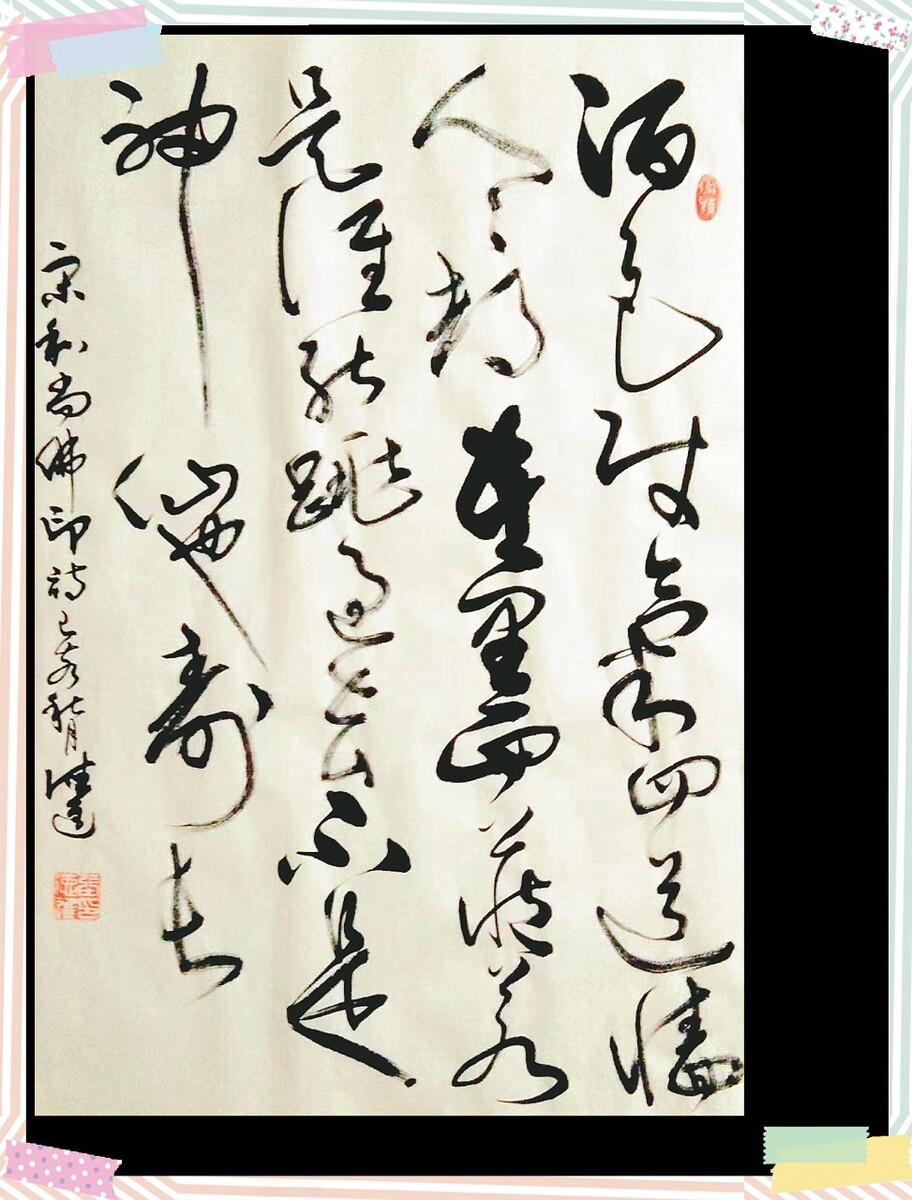 酒色财氣四道墙
人人都在里面藏若
是谁能跳過去不是
神仙也寿长
宋和尚佛印诗己亥秋月